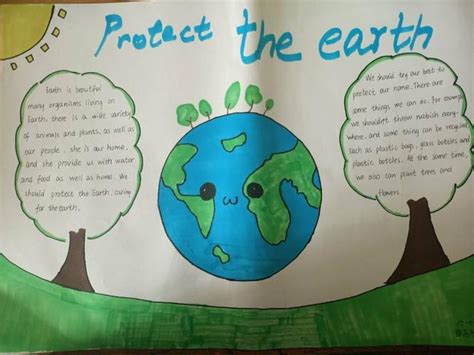 Protect the earth
Earth is beautiful
many organisms living on
Earth. there is a wide variety
of animals and plants, as well as
our people. she is our home,
and she provide us with water
and food as well as home. We
should protect the Earth, caring
for the earth.
We should try our best to
protect our home. There are
some things we can do. For example
we shouldn't throw rubbish every-
where, and some thing can be recycled
such as plastic bags, glass bottles and
plastic bottles. At the same time,
we also can plant trees and
flowers.